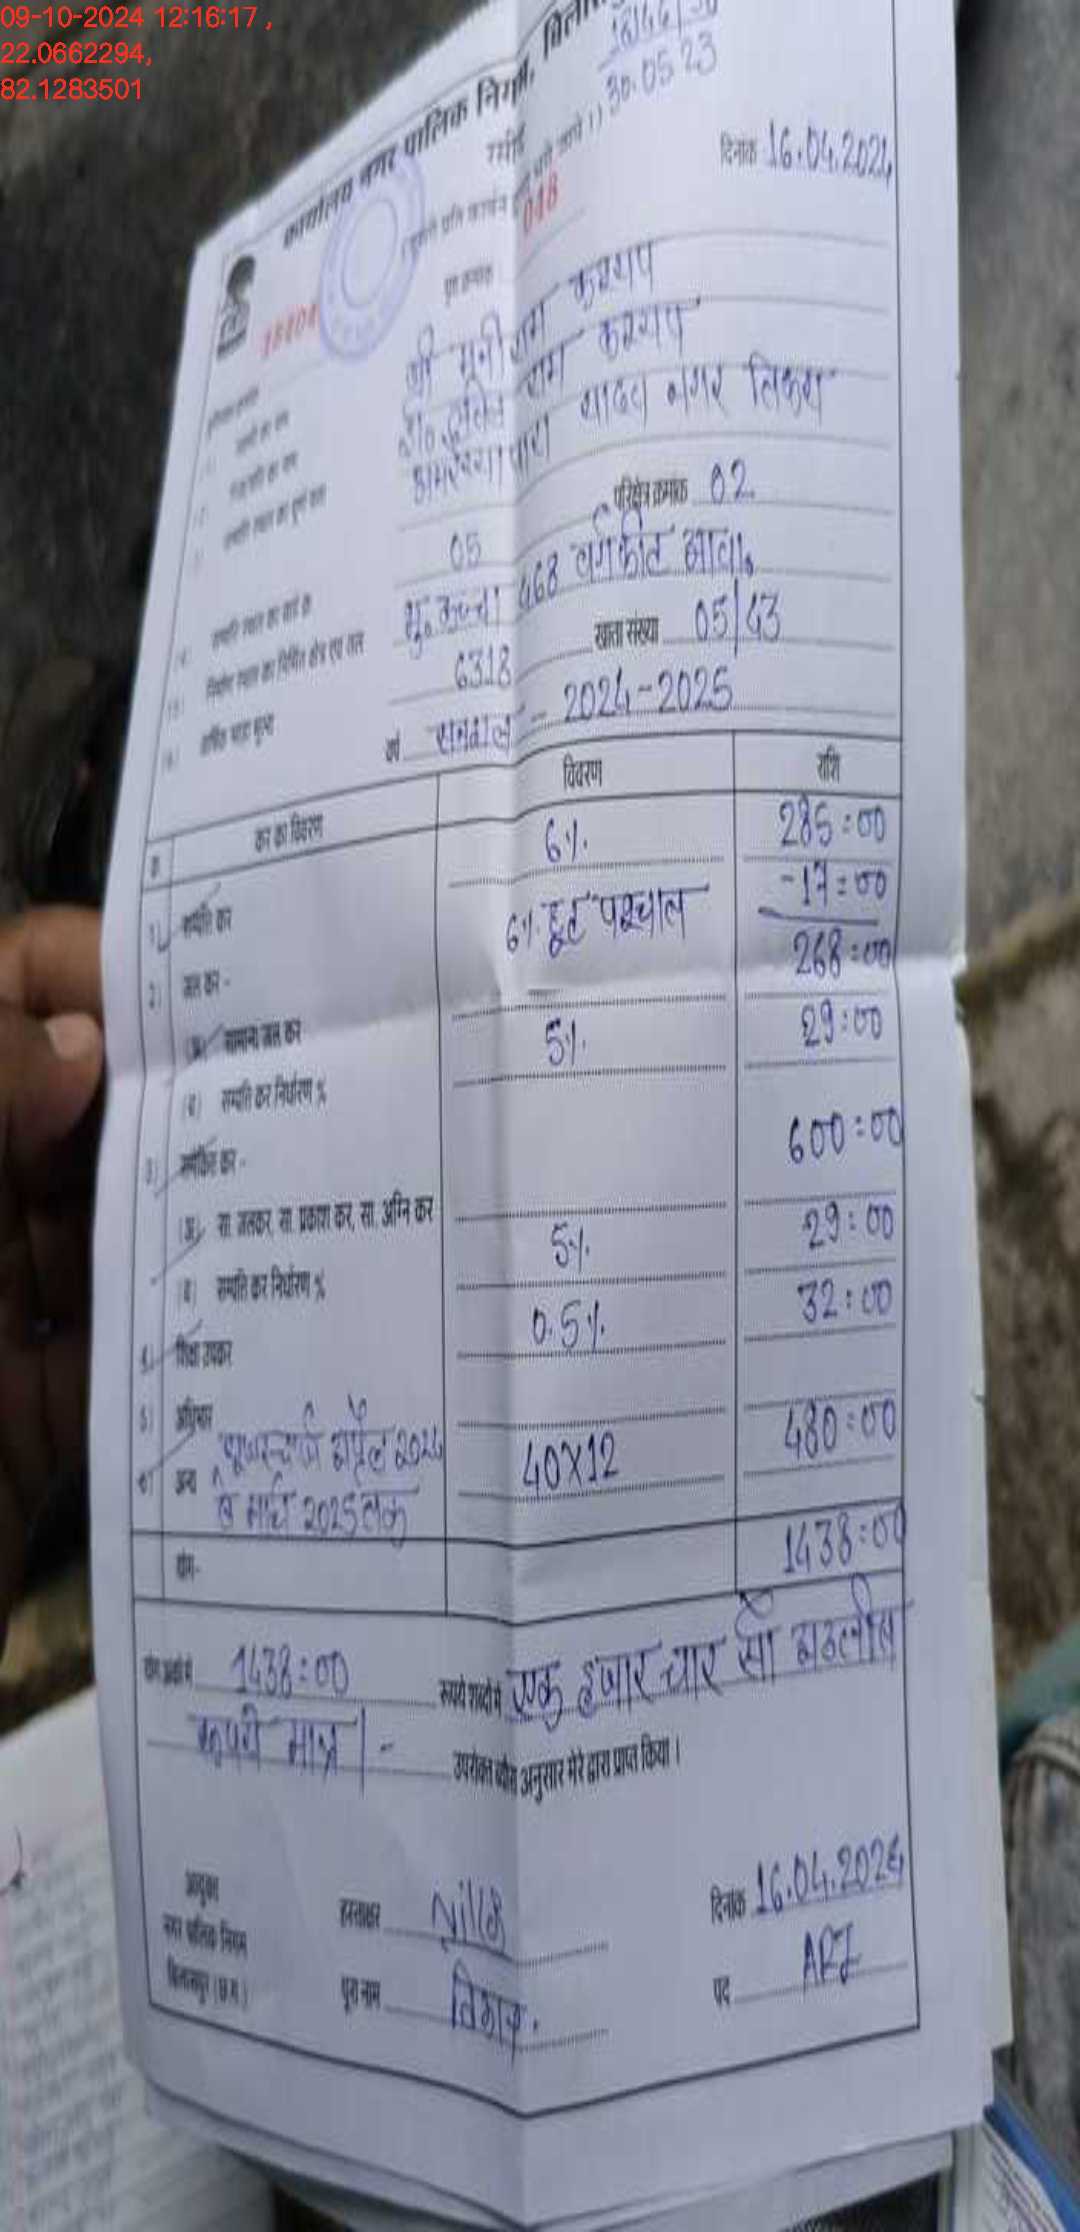 09-10-2024 12:16:17 ,
22.0662294,
82.1283501
कार्यालय नगर पालिक निगम,
30.05.23
रसीद
दिनांक 16.04.2024
048
श्री मनीराम कश्यप
राम कश्यप
यादव नगर तिफरा
05 परिक्षेत्र क्रमांक 02
468 वर्गफीट आवा.
6318 खाता संख्या 05/43
वर्ष 2024-2025
कर का विवरण विवरण राशि
1) सम्पत्ति कर 6% 285=00
6% छूट पश्चात -17=00
268=00
2) जल कर -
(अ) सामान्य जल कर 5% 29=00
(ब) सम्पत्ति कर निर्धारण %
3) समेकित कर - 600=00
(अ) सा. जलकर, सा. प्रकाश कर, सा. अग्नि कर 5% 29=00
(ब) सम्पत्ति कर निर्धारण % 0.5% 32=00
4) शिक्षा उपकर
5) अधिभार
6) अन्य यूजरचार्ज अप्रैल 2024 40X12 480=00
से मार्च 2025 तक
योग- 1438=00
योग अंकों में 1438=00 रूपये शब्दों में एक हजार चार सौ अड़तीस
रूपये मात्र।-
उपरोक्त ब्यौरा अनुसार मेरे द्वारा प्राप्त किया।
आयुक्त हस्ताक्षर दिनांक 16.04.2024
नगर पालिक निगम
बिलासपुर (छ.ग.) पूरा नाम पद